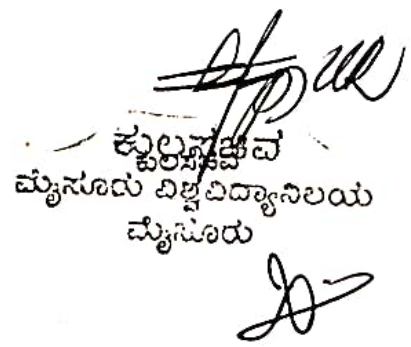 ಕುಲಸಚಿವ
ಕುಲಸಚಿವ
ಮೈಸೂರು ವಿಶ್ವವಿದ್ಯಾನಿಲಯ
ಮೈಸೂರು